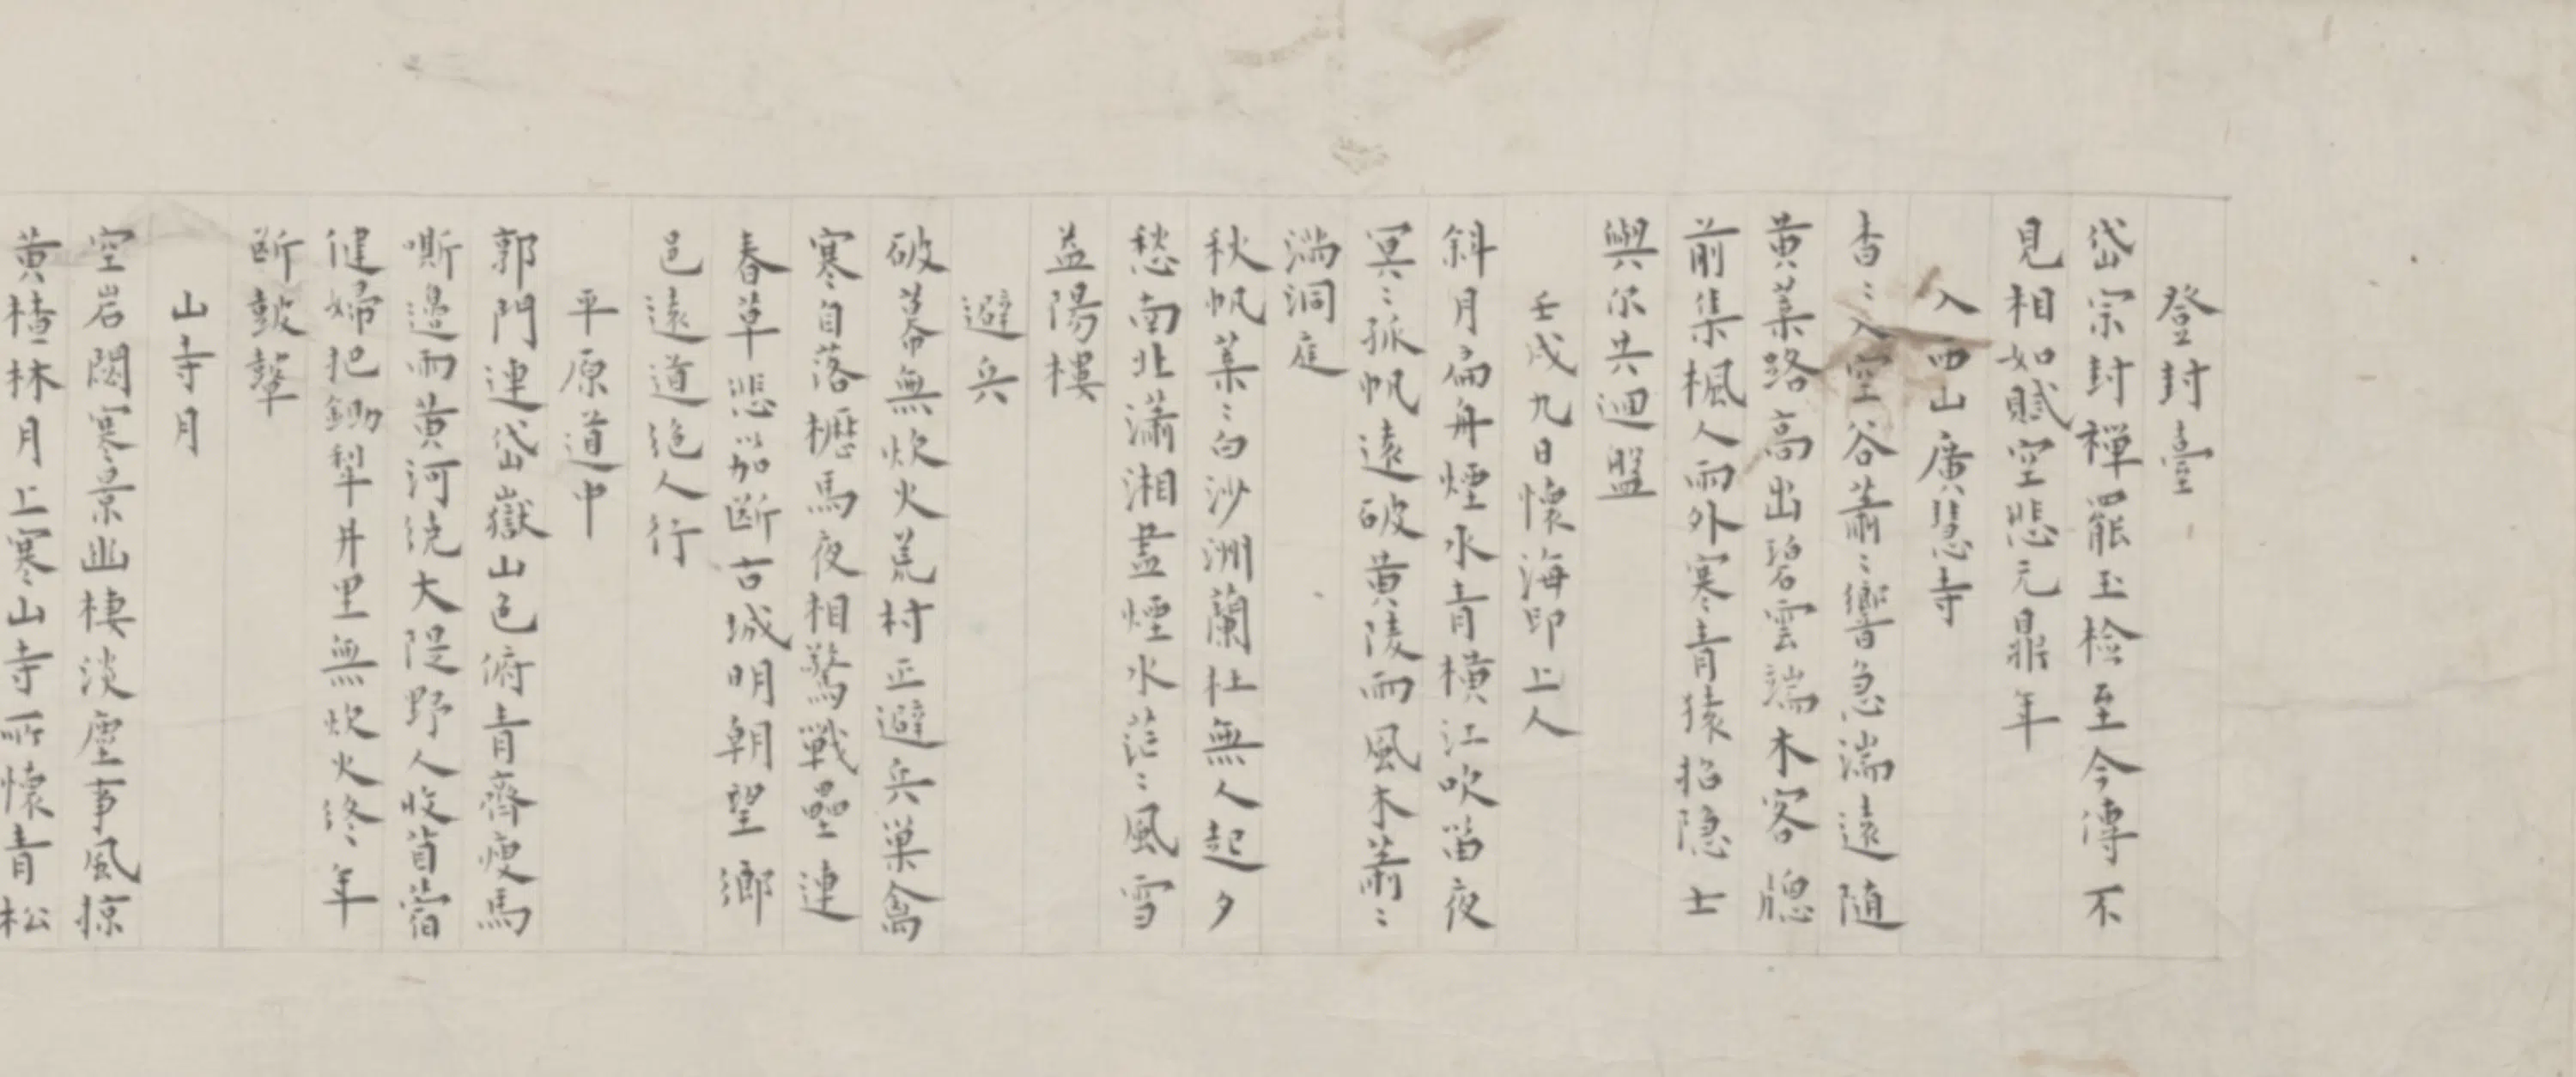 登封臺
岱宗封禪罷玉检至今傳不
見相如賦空悲元鼎年
入西山廣慧寺
杳〻入空谷蕭〻響急湍遠随
黄葉路高出碧雲端木客牕
前集楓人雨外寒青猿招隐士
與尔共迴盤
壬戌九日懷海印上人
斜月扁舟煙水青横江吹笛夜
冥〻孤帆遠破黄陵雨風木蕭〻
满洞庭
秋帆葉〻白沙洲蘭杜無人起夕
愁南北瀟湘盡煙水茫〻風雪
益陽樓
避兵
破幕無炊火荒村正避兵巢禽
寒自落櫪馬夜相驚戰壘連
春草悲笳断古城明朝望鄉
邑遠道绝人行
平原道中
郭門連岱嶽山色俯青齊瘦馬
嘶邉雨黄河绕大隄野人收苜蓿
健婦把鋤犁井里無炊火终年
断鼓鼙
山寺月
空岩閟寒景幽棲淡塵事風掠
黄楂林月上寒山寺所懷青松